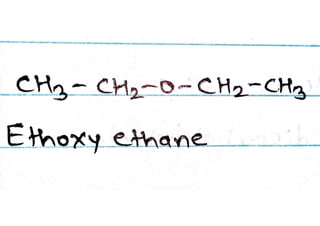 CH₃-CH₂-O-CH₂-CH₃
Ethoxy ethane